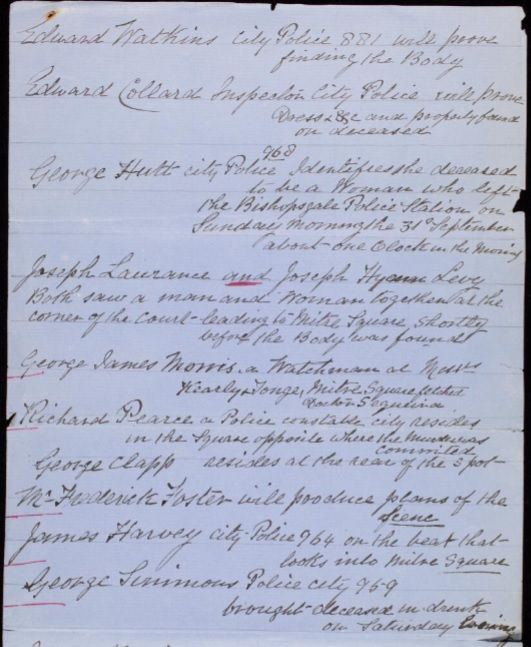 Edward Watkins City Police 881 will prove
finding the Body
Edward Collard Inspector City Police will prove
Dress &c and property found
on deceased
968
George Hutt City Police Identifies the deceased
to be a Woman who left
the Bishopsgate Police Station on
Sunday Morning the 31st September
about one O Clock in the Morning
Joseph Laurance and Joseph Hyam Levy
Both saw a man and Woman together at the
corner of the Court leading to Mitre Square, Shortly
before the Body was found
George James Morris a Watchman at Messrs
Kearly & Tonge, Mitre Square fetched
Doctor Sequeira
Richard Pearce a Police constable city resides
in the Square opposite where the Murder was
committed
George Clapp resides at the rear of the Spot
Mr Frederick Foster will produce plans of the
Scene
James Harvey City Police 964 on the beat that
looks into Mitre Square
George Simmons Police City 959
brought deceased in drunk
on Saturday Evening